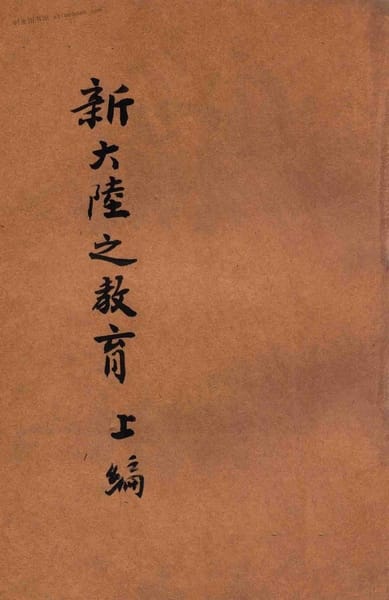 新大陸之教育 上編